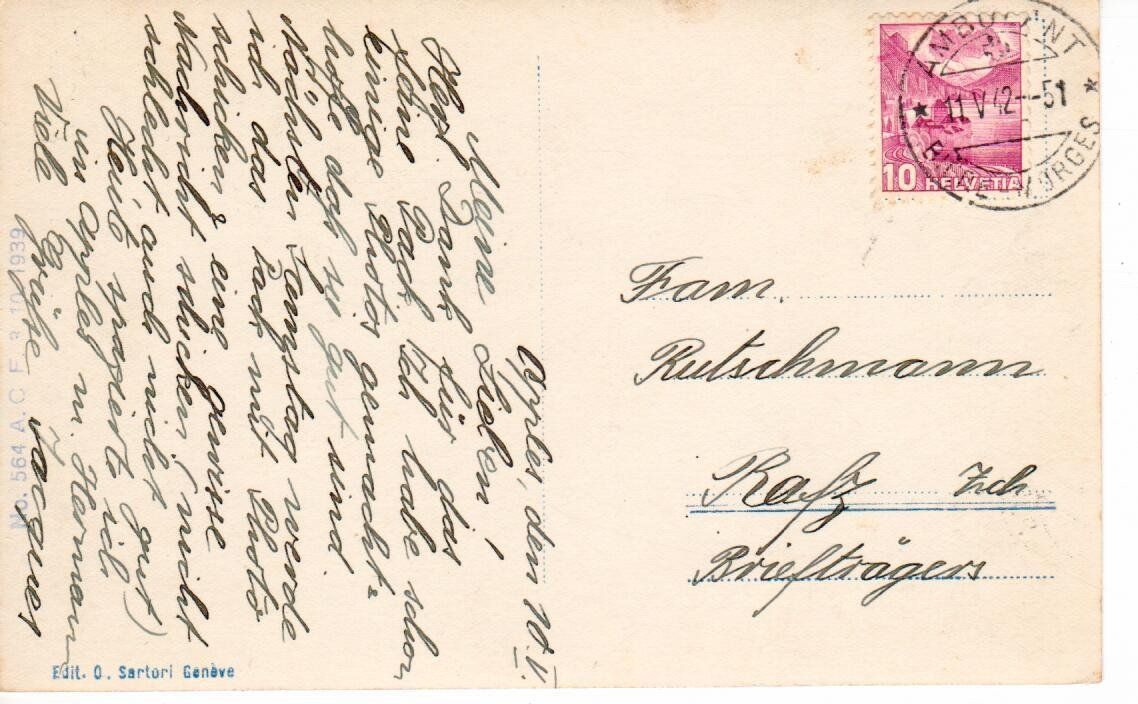 Apples, dem 10.V.
Meine Lieben!
Herzl. Dank für das
feine Pack. Ich habe schon
einige Photos gemacht &
hoffe das sie gut sind
Nächsten Samstag werde
ich das Pack mit Photo
schicken & eine gewisse
Nachricht schicken (nicht
schlecht auch nicht gut)
Heute spazierte ich
in Apples m. Hermann
Viele Grüsse Jacques
No. 564 A. C. F. 3. 10. 1939
Edit. O. Sartori Genève
AMBULANT
★ 11 V 42--51 ★
MORGES
10 HELVETIA
Fam.
Rutschmann
Rafz Zch
Briefträgers